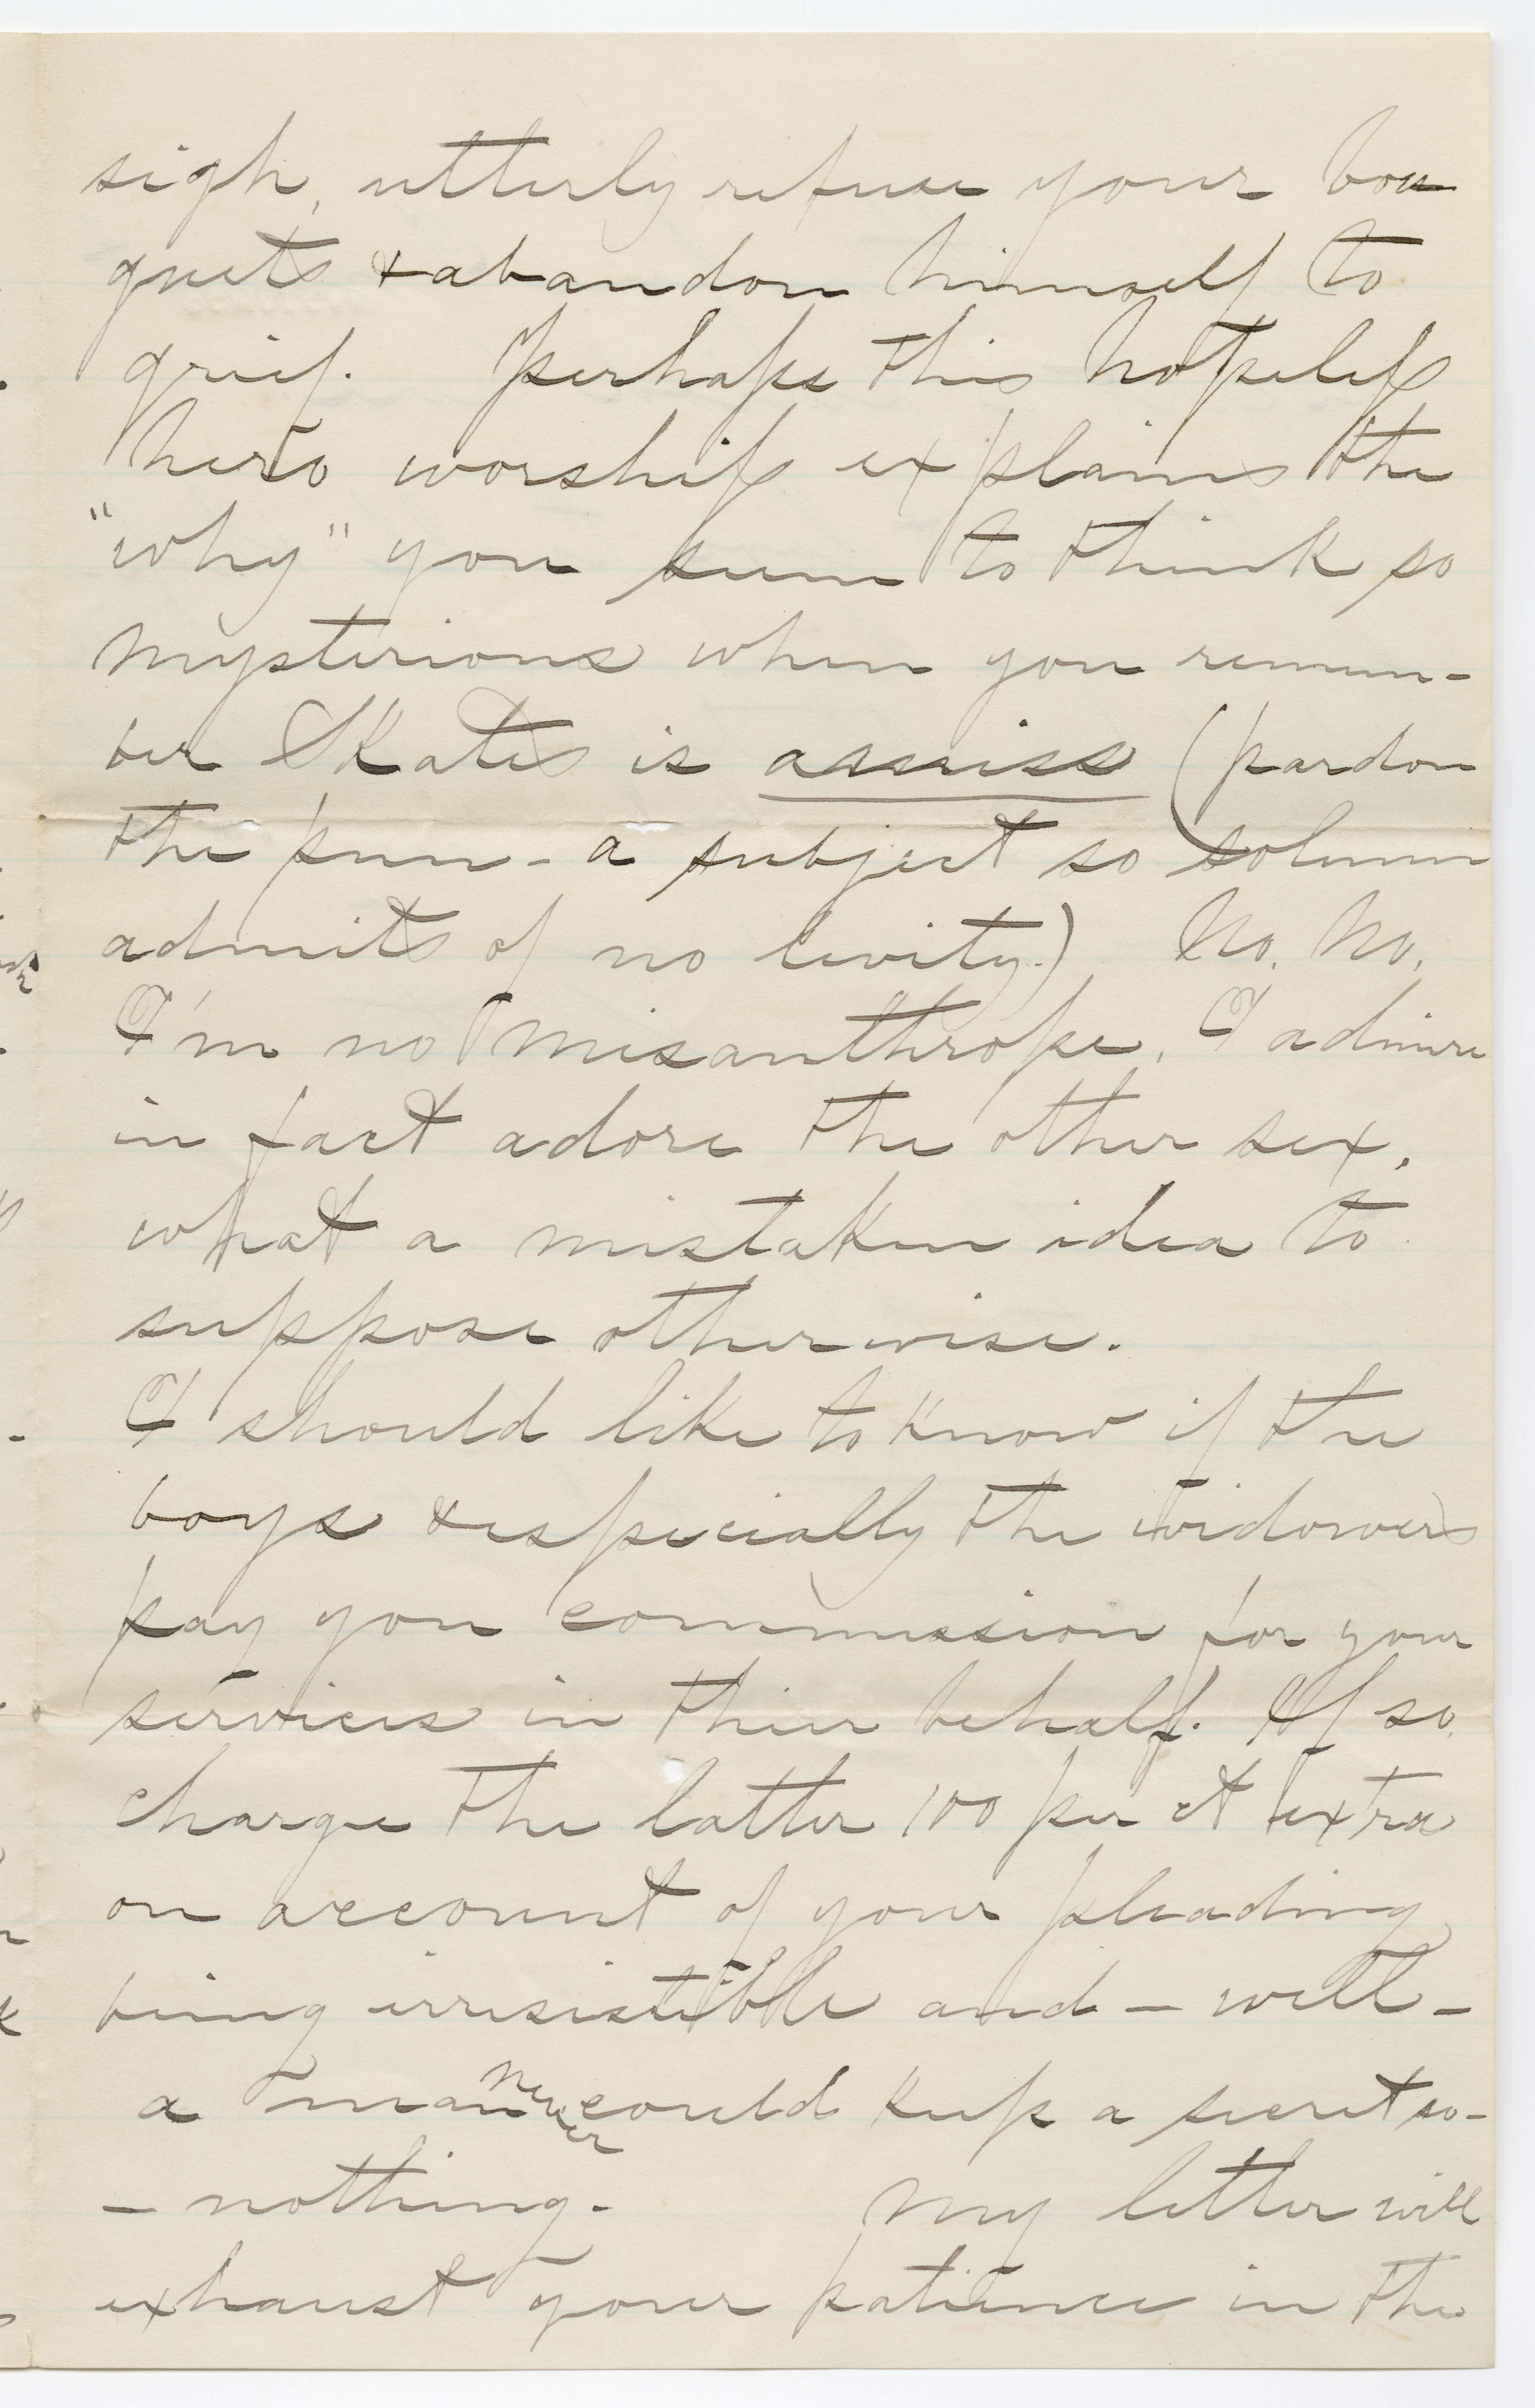 sigh, utterly refuse your bou
quets & abandon himself to
grief. Perhaps this hopeless
hero worship explains the
"why" you seem to think so
mysterious when you remem-
ber Skates is amiss (pardon
the pun - a subject so solemn
admits of no levity.) No, No,
I'm no misanthrope, I admire
in fact adore the other sex,
what a mistaken idea to
suppose otherwise.
I should like to know if the
boys & especially the widowers
pay you commission for your
services in their behalf. If so
charge the latter 100 per ct extra
on account of your pleading
being irresistible and - well -
a man never could keep a secret so -
- nothing. My letter will
exhaust your patience in the